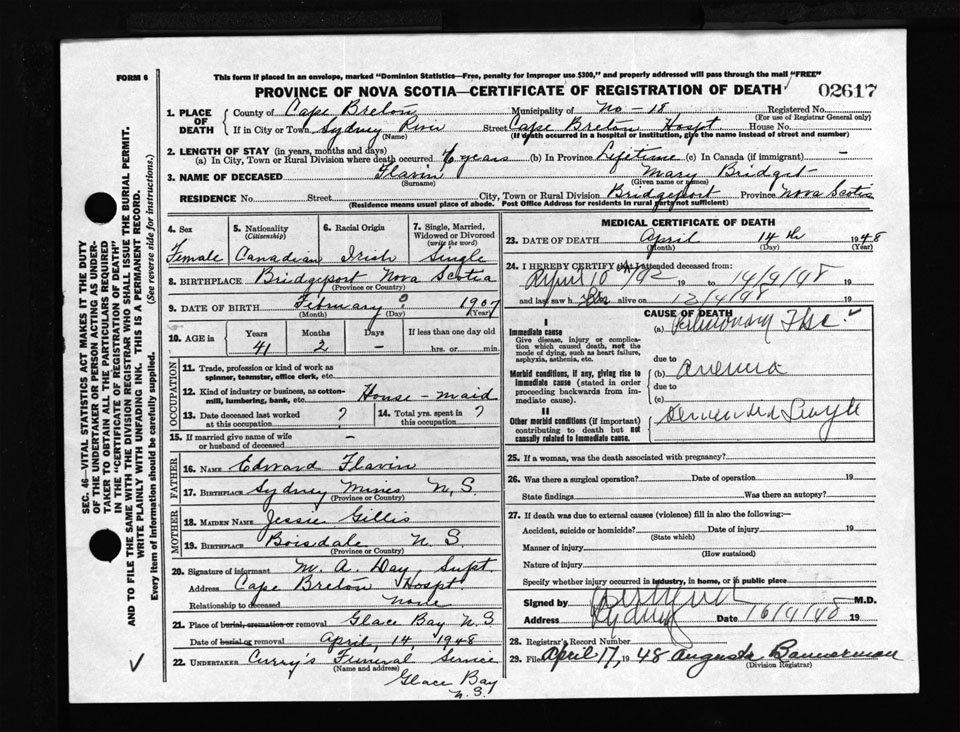 FORM 6
This form if placed in an envelope, marked "Dominion Statistics—Free, penalty for improper use $300," and properly addressed will pass through the mail "FREE"
PROVINCE OF NOVA SCOTIA—CERTIFICATE OF REGISTRATION OF DEATH
02617
1. PLACE OF DEATH
County of Cape Breton Municipality of No-18 Registered No.
(For use of Registrar General only)
If in City or Town Sydney River Street Cape Breton Hospt. House No.
(Name) (If death occurred in a hospital or institution, give the name instead of street and number)
2. LENGTH OF STAY (in years, months and days)
(a) In City, Town or Rural Division where death occurred 6 years (b) In Province Lifetime (c) In Canada (if immigrant) —
3. NAME OF DECEASED Flavin Mary Bridget
(Surname) (Given name or names)
RESIDENCE No. Street City, Town or Rural Division Bridgeport Province Nova Scotia
(Residence means usual place of abode. Post Office Address for residents in rural parts not sufficient)
4. Sex Female
5. Nationality (Citizenship) Canadian
6. Racial Origin Irish
7. Single, Married, Widowed or Divorced (write the word) Single
8. BIRTHPLACE Bridgeport Nova Scotia
(Province or Country)
9. DATE OF BIRTH February ? 1907
(Month) (Day) (Year)
10. AGE in Years Months Days If less than one day old
41 2 — hrs. or min.
OCCUPATION
11. Trade, profession or kind of work as spinner, teamster, office clerk, etc.
12. Kind of industry or business, as cotton-mill, lumbering, bank, etc. House-maid
13. Date deceased last worked at this occupation ?
14. Total yrs. spent in this occupation ?
15. If married give name of wife or husband of deceased —
FATHER
16. NAME Edward Flavin
17. BIRTHPLACE Sydney Mines N.S.
(Province or Country)
MOTHER
18. MAIDEN NAME Jessie Gillis
19. BIRTHPLACE Boisdale N.S.
(Province or Country)
20. Signature of informant M. A. Day, Supt.
Address Cape Breton Hospt.
Relationship to deceased None
21. Place of burial, cremation or removal Glace Bay N.S.
Date of burial or removal April, 14 1948
22. UNDERTAKER Curry's Funeral Service
(Name and address)
Glace Bay
N.S.
MEDICAL CERTIFICATE OF DEATH
23. DATE OF DEATH April 14th 1948
(Month) (Day) (Year)
24. I HEREBY CERTIFY that I attended deceased from:
April 10 19 to 14/4/48 19
and last saw h er alive on 12/4/48 19
CAUSE OF DEATH
I
Immediate cause
Give disease, injury or complication which caused death, not the mode of dying, such as heart failure, asphyxia, asthenia, etc.
(a) Pulmonary Tbc.
due to
Morbid conditions, if any, giving rise to immediate cause (stated in order proceeding backwards from immediate cause).
(b) Anemia
due to
(c)
II
Other morbid conditions (if important) contributing to death but not causally related to immediate cause.
25. If a woman, was the death associated with pregnancy?
26. Was there a surgical operation? Date of operation 19
State findings Was there an autopsy?
27. If death was due to external causes (violence) fill in also the following:—
Accident, suicide or homicide? Date of injury 19
(State which)
Manner of injury
(How sustained)
Nature of injury
Specify whether injury occurred in industry, in home, or in public place
Signed by M.D.
Address Sydney Date 16/4/48 19
28. Registrar's Record Number
29. Filed April 17, 1948 Augusta Bannerman
(Division Registrar)
SEC. 46—VITAL STATISTICS ACT MAKES IT THE DUTY OF THE UNDERTAKER OR PERSON ACTING AS UNDERTAKER TO OBTAIN ALL THE PARTICULARS REQUIRED IN THE "CERTIFICATE OF REGISTRATION OF DEATH" AND TO FILE THE SAME WITH THE DIVISION REGISTRAR WHO SHALL ISSUE THE BURIAL PERMIT.
WRITE PLAINLY WITH UNFADING INK. THIS IS A PERMANENT RECORD.
Every item of information should be carefully supplied. (See reverse side for instructions.)